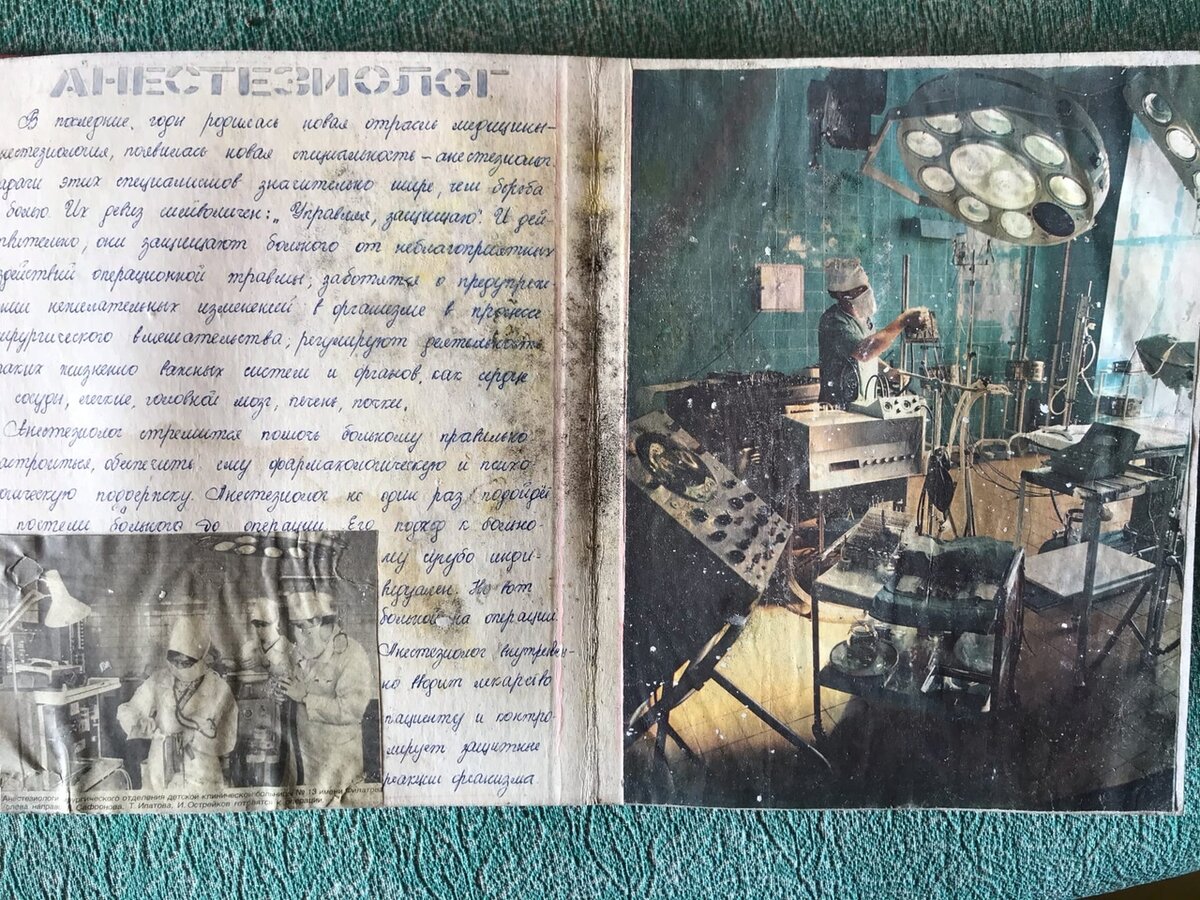 АНЕСТЕЗИОЛОГ
В последние годы родилась новая отрасль медицины-
нестезиология, появилась новая специальность – анестезиолог.
этих специалистов значительно шире, чем борьба
болью. Их девиз символичен: „Управляя, защищаю“. И дей-
твительно, они защищают больного от неблагоприятных
здействий операционной травмы, заботятся о предупреж
нии нежелательных изменений в организме в процессе
ирургического вмешательства, регулируют деятельность
аких жизненно важных систем и органов, как сердце
сосуды, легкие, головной мозг, печень, почки.
Анестезиолог стремится помочь больному правильно
астроиться, обеспечить ему фармакологическую и психо
огическую поддержку. Анестезиолог не один раз подойдёт
постели больного до операции. Его подход к больно-
му сугубо инди-
видуален. Но вот
больной на операции
Анестезиолог внутривен-
но вводит лекарство
пациенту и контро-
лирует защитные
реакции организма
Анестезиологи хирургического отделения детской клинической больницы № 13 имени Филатова
слева направо Сафронова, Т. Ипатова, И. Острейков готовятся к операции